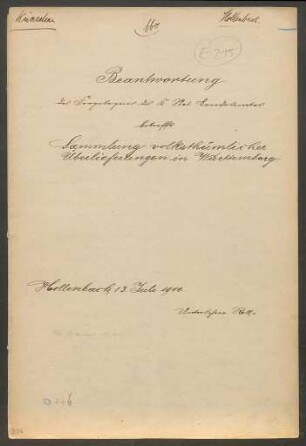 Künzelsau
160
Hollenbach
E 215
Beantwortung
des Fragebogens des K. Stat. Landesamtes
betreffs
Sammlung volksthümlicher
Überlieferungen in Württemberg
Hollenbach, 13. Juli 1900.